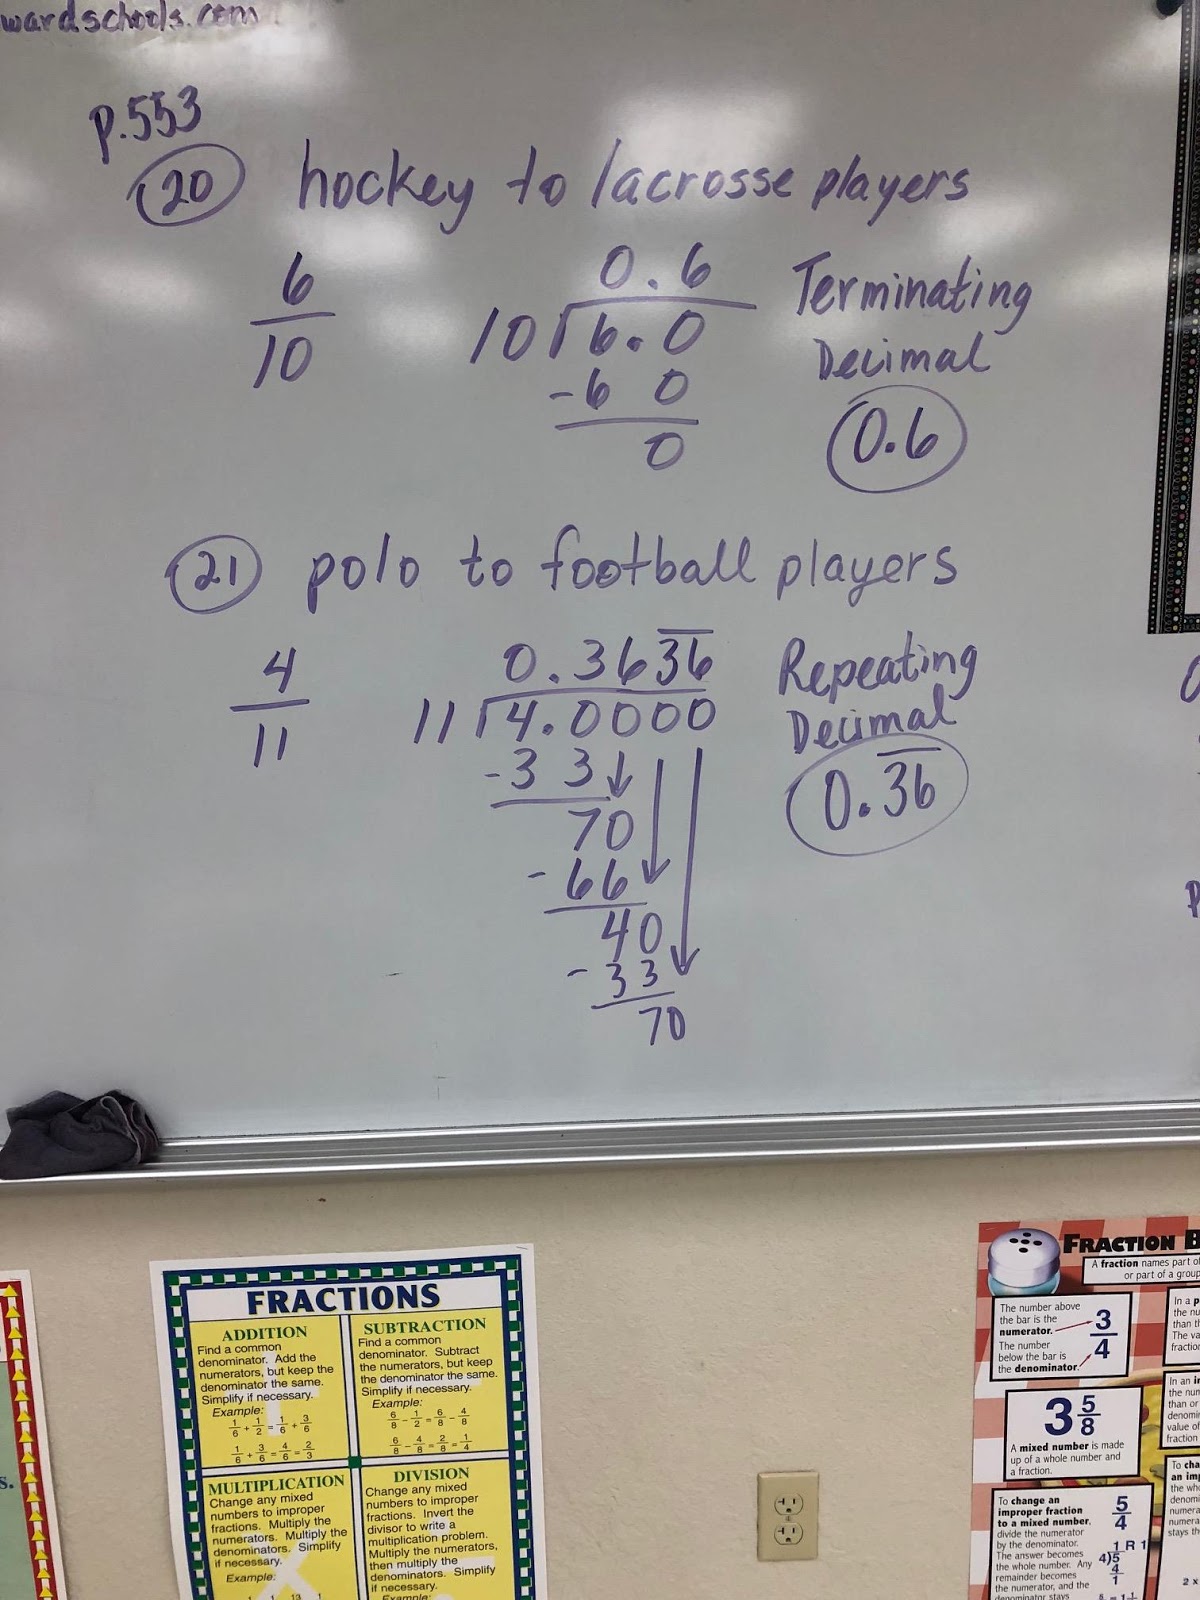 wardschools.com
p.553
20 hockey to lacrosse players
6/10
0.6
10 6.0
-6 0
0
Terminating
Decimal
0.6
21 polo to football players
4/11
0.363̅6̅
11 4.0000
-3 3
70
-66
40
-33
70
Repeating
Decimal
0.3̅6̅
FRACTIONS
ADDITION
Find a common
denominator. Add the
numerators, but keep the
denominator the same.
Simplify if necessary.
Example:
1/6 + 1/2 = 1/6 + 3/6
1/6 + 3/6 = 4/6 = 2/3
SUBTRACTION
Find a common
denominator. Subtract
the numerators, but keep
the denominator the same.
Simplify if necessary.
Example:
6/8 - 1/2 = 6/8 - 4/8
6/8 - 4/8 = 2/8 = 1/4
MULTIPLICATION
Change any mixed
numbers to improper
fractions. Multiply the
numerators. Multiply the
denominators. Simplify
if necessary.
Example:
DIVISION
Change any mixed
numbers to improper
fractions. Invert the
divisor to write a
multiplication problem.
Multiply the numerators,
then multiply the
denominators. Simplify
if necessary.
Example:
FRACTION B
A fraction names part of
or part of a group
The number above
the bar is the
numerator.
The number
below the bar is
the denominator.
3/4
3 5/8
A mixed number is made
up of a whole number and
a fraction.
To change an
improper fraction
to a mixed number,
divide the numerator
by the denominator.
The answer becomes
the whole number. Any
remainder becomes
the numerator, and the
denominator stays
5/4
1 R 1
4)5
4
1
In a p
the nu
than th
The va
fraction
In an i
the num
than or
denomi
value of
fraction
To cha
an imp
the who
denomi
numera
numera
stays th
2 x